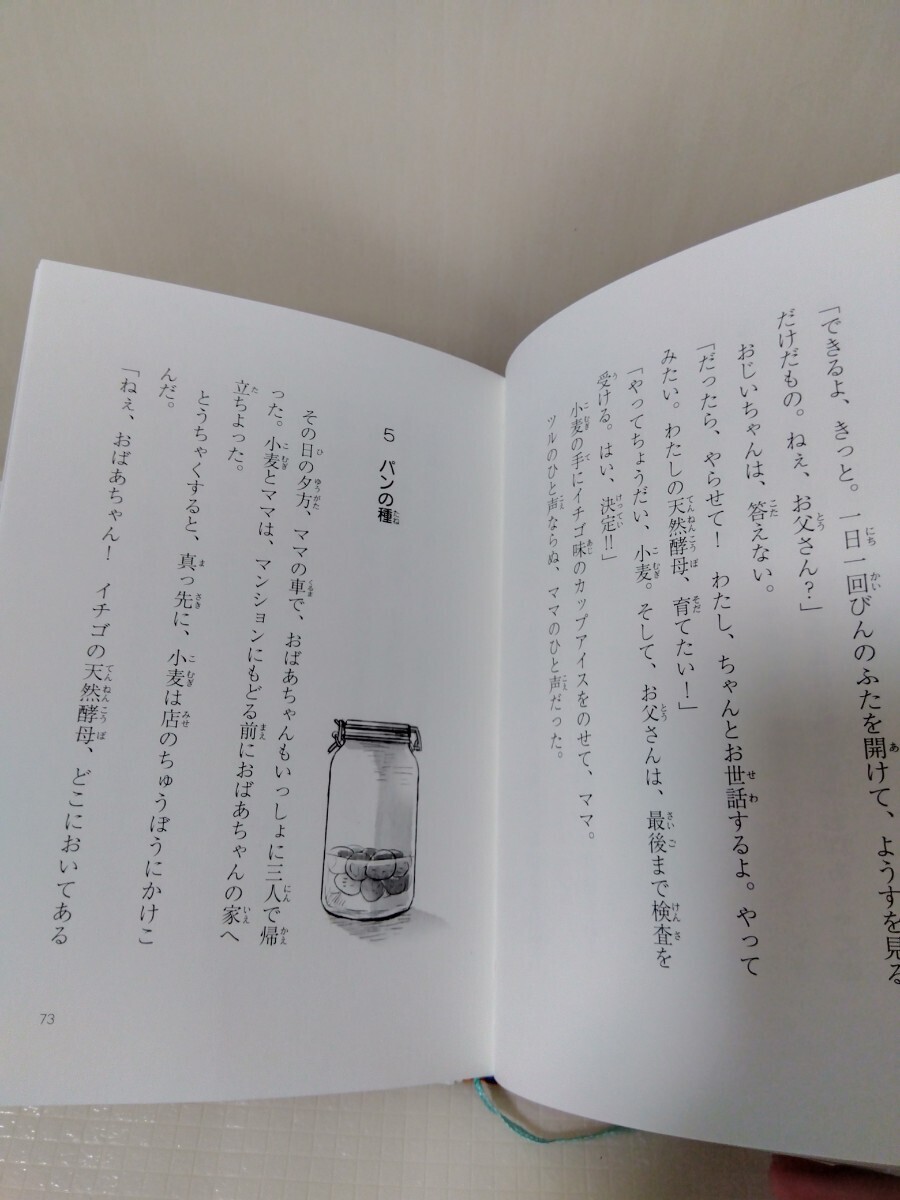 「できるよ、きっと。一日一回びんのふたを開けて、ようすを見る
だけだもの。ねえ、お父さん?」
おじいちゃんは、答えない。
「だったら、やらせて! わたし、ちゃんとお世話するよ。やって
みたい。わたしの天然酵母、育てたい!」
「やってちょうだい、小麦。そして、お父さんは、最後まで検査を
受ける。はい、決定!!」
小麦の手にイチゴ味のカップアイスをのせて、ママ。
ツルのひと声ならぬ、ママのひと声だった。
5 パンの種
その日の夕方、ママの車で、おばあちゃんもいっしょに三人で帰
った。小麦とママは、マンションにもどる前におばあちゃんの家へ
立ちよった。
とうちゃくすると、真っ先に、小麦は店のちゅうぼうにかけこ
んだ。
「ねぇ、おばあちゃん! イチゴの天然酵母、どこにおいてある
73